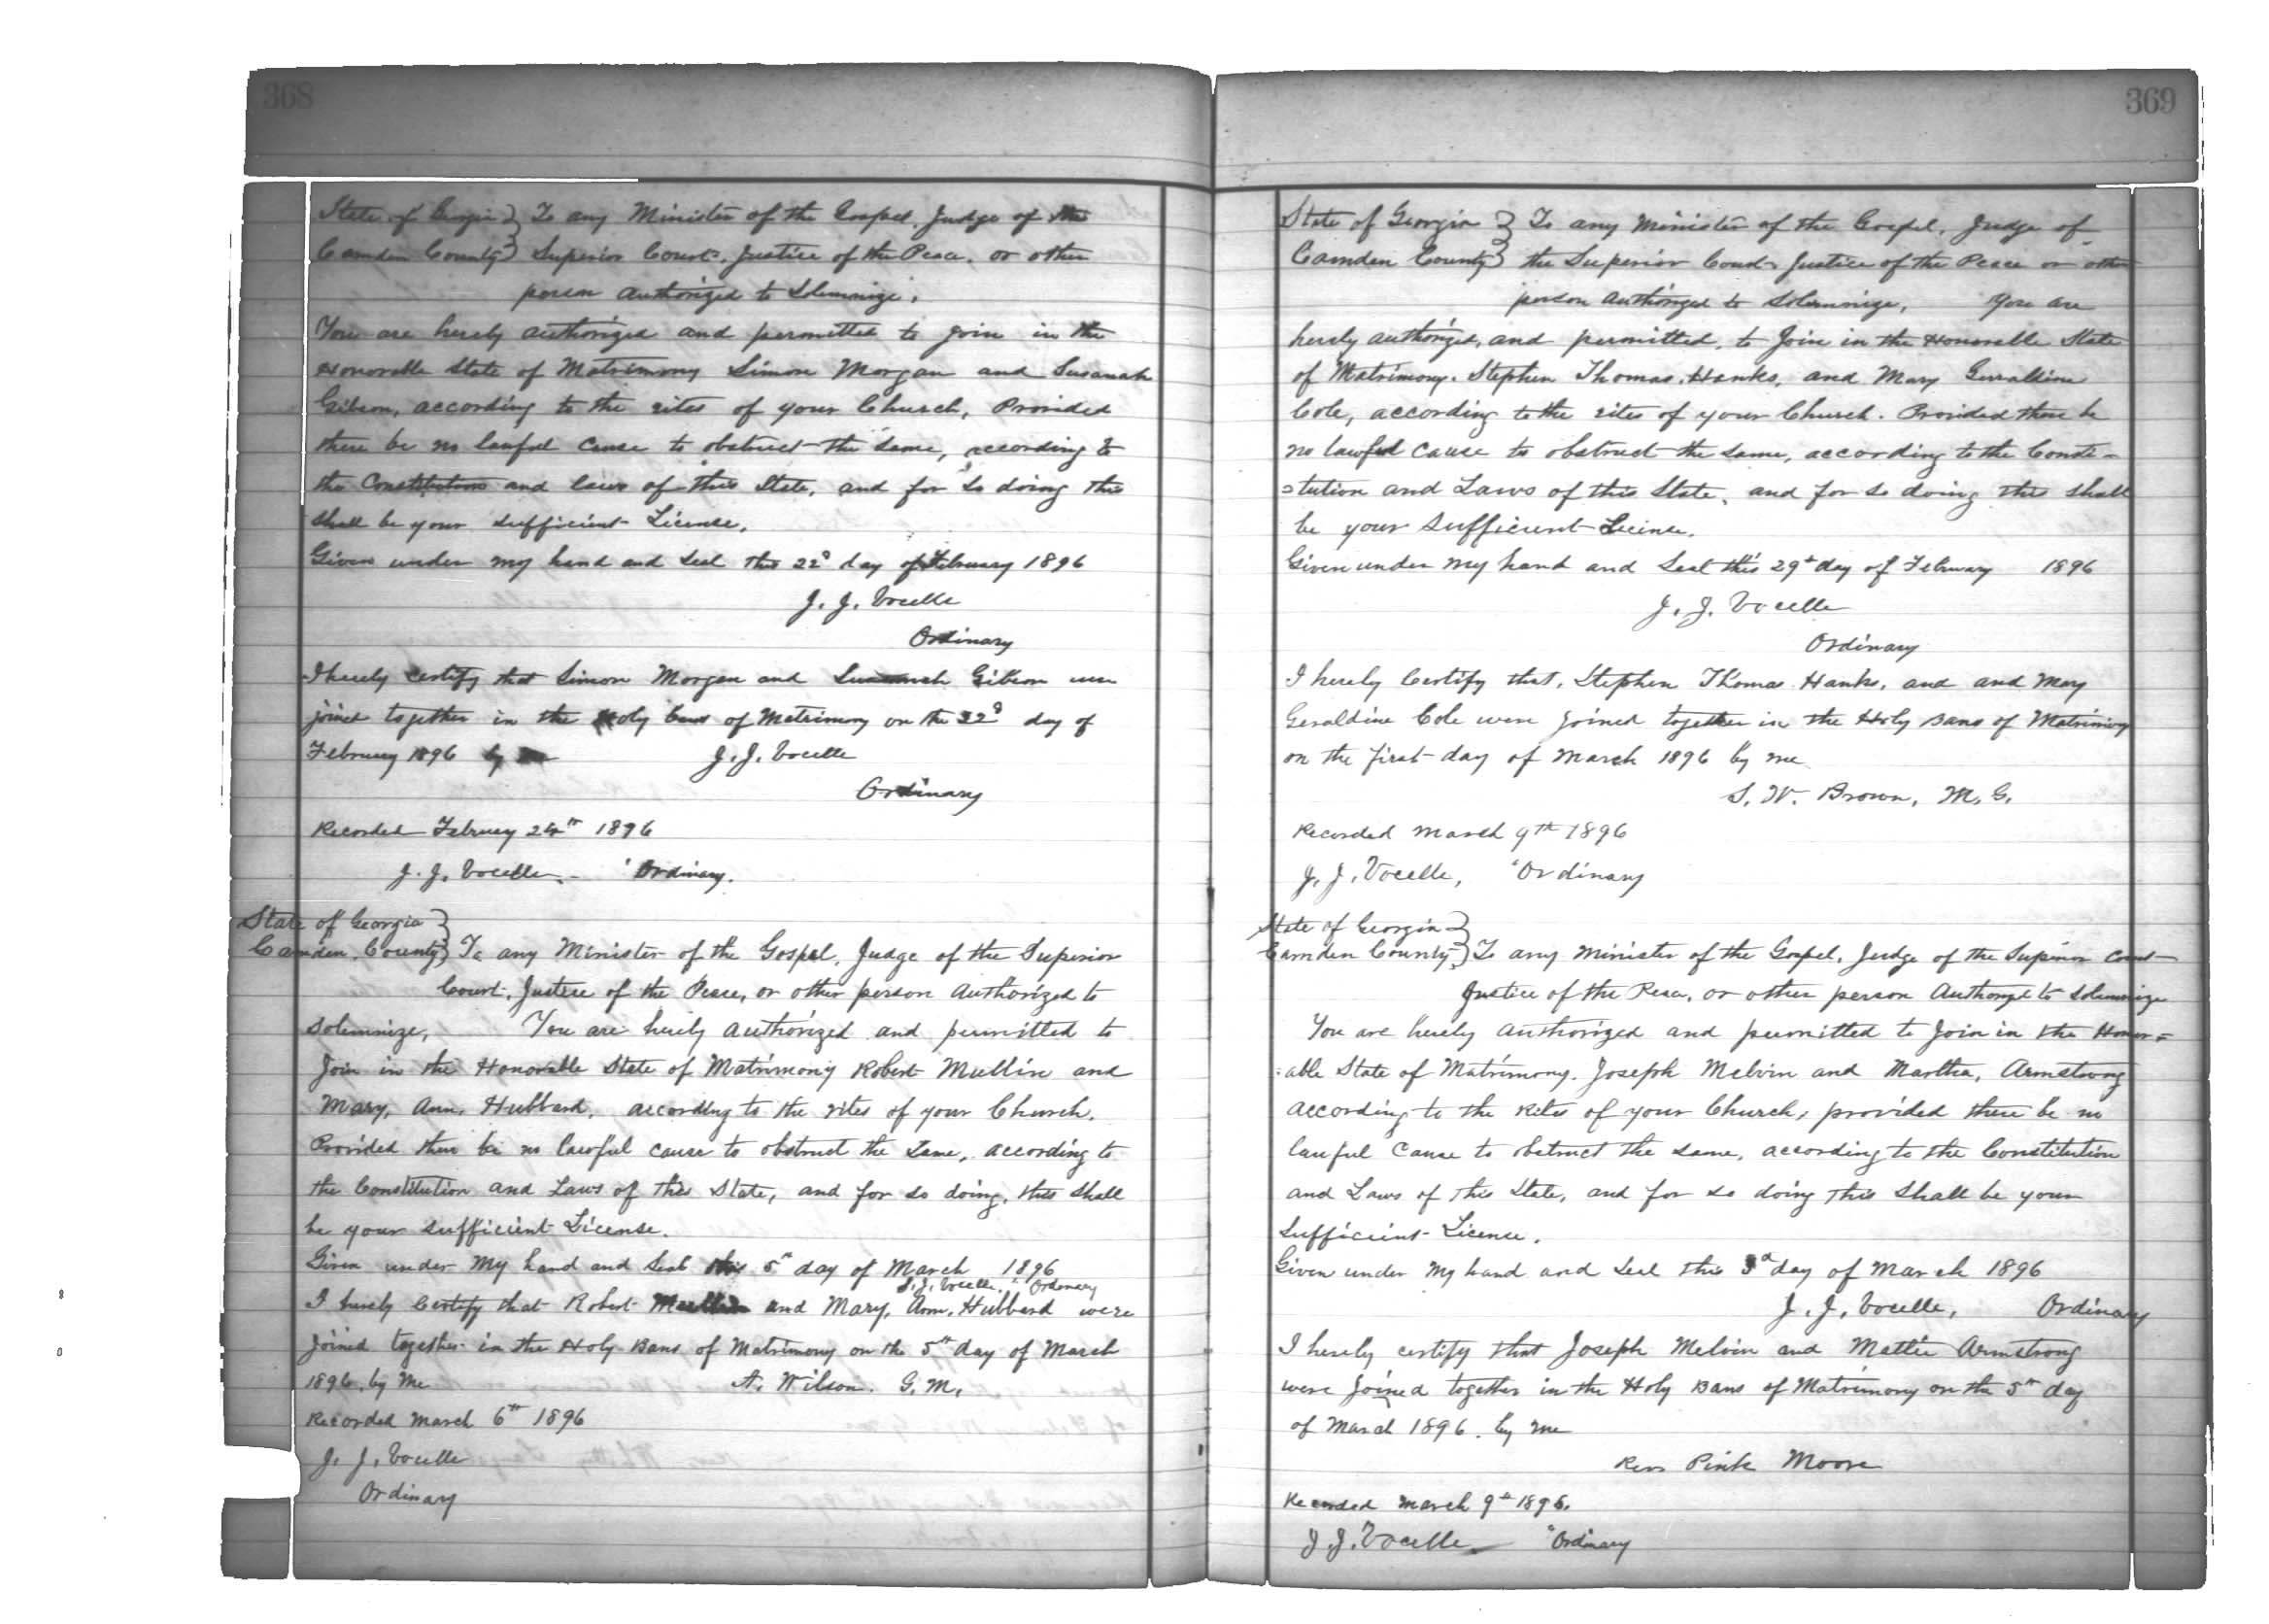 368
State of Georgia } To any Minister of the Gospel, Judge of the
Camden County } Superior Court, Justice of the Peace, or other
person authorized to Solemnize,
You are hereby authorized and permitted to join in the
Honorable State of Matrimony Simon Morgan and Susanah
Gibson, according to the rites of your Church, Provided
there be no lawful cause to obstruct the same, according to
the Constitution and laws of this State, and for so doing this
shall be your sufficient License.
Given under my hand and seal this 22d day of February 1896
J. J. Vocelle
Ordinary
I hereby certify that Simon Morgan and Gibson were
joined together in the Holy bans of Matrimony on the 22d day of
February 1896 by J. J. Vocelle
Ordinary
Recorded February 24th 1896
J. J. Vocelle, Ordinary.
State of Georgia }
Camden County } To any Minister of the Gospel, Judge of the Superior
Court, Justice of the Peace, or other person Authorized to
Solemnize, You are hereby authorized and permitted to
Join in the Honorable State of Matrimony Robert Mullin and
Mary, Ann, Hubbard, according to the rites of your Church.
Provided there be no lawful cause to obstruct the same, according to
the Constitution and Laws of this State, and for so doing, this shall
be your sufficient License.
Given under My hand and Seal this 5th day of March 1896
J. J. Vocelle, Ordinary
I hereby Certify that Robert Mullin and Mary, Ann, Hubbard were
Joined together in the Holy Bans of Matrimony on the 5th day of March
1896, by Me A. Wilson. G. M.
Recorded March 6th 1896
J. J. Vocelle
Ordinary
369
State of Georgia } To any Minister of the Gospel, Judge of
Camden County } the Superior Court Justice of the Peace or other
person Authorized to Solemnize, You are
hereby authorized, and permitted, to Join in the Honorable State
of Matrimony. Stephen Thomas. Hanks, and Mary Gerraldine
Cole, according to the rites of your Church. Provided there be
no lawful cause to obstruct the same, according to the Consti-
=tution and Laws of this State, and for so doing this shall
be your sufficient License.
Given under My hand and Seal this 29th day of February 1896
J. J. Vocelle
Ordinary
I hereby Certify that, Stephen Thomas Hanks, and and Mary
Geraldine Cole were Joined together in the Holy Bans of Matrimony
on the first day of March 1896 by me
S. W. Brown, M. G.
Recorded March 9th 1896
J. J. Vocelle, Ordinary
State of Georgia }
Camden County } To any Minister of the Gospel, Judge of the Superior Court
Justice of the Peace, or other person to Solemnize
You are hereby authorized and permitted to Join in the Honor=
=able State of Matrimony. Joseph Melvin and Martha, Armstrong
according to the Rites of your Church, provided there be no
lawful Cause to obstruct the same, according to the Constitution
and Laws of this State, and for so doing this shall be your
sufficient License.
Given under My hand and seal this 3d day of March 1896
J. J. Vocelle, Ordinary
I hereby certify that Joseph Melvin and Mattie Armstrong
were joined together in the Holy Bans of Matrimony on the 5th day
of March 1896. by me
Rev Pink Moore
Recorded March 9th 1896.
J. J. Vocelle Ordinary